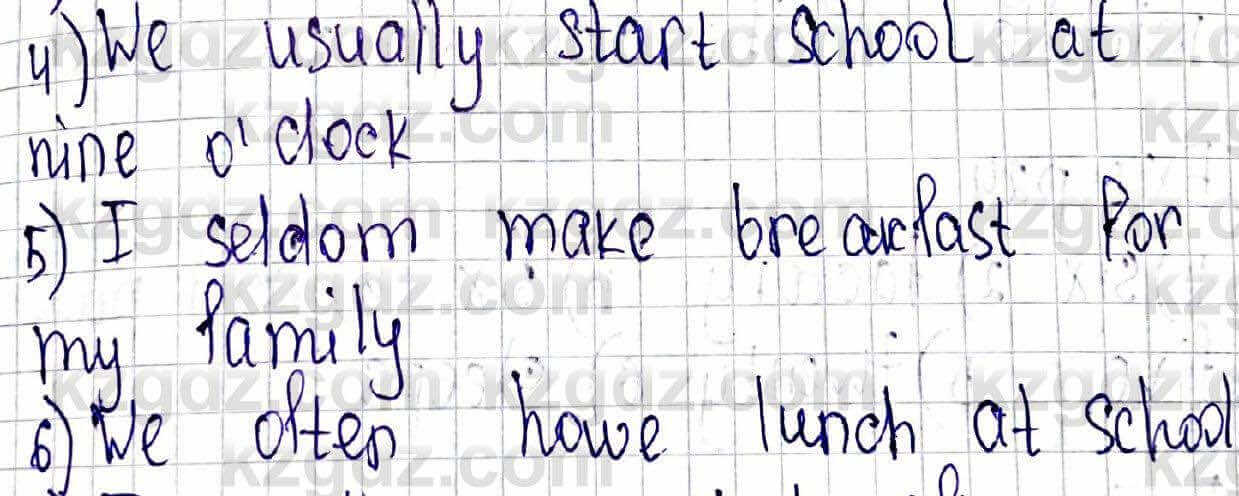 4) We usually start school at
nine o'clock
5) I seldom make breacfast for
my family
6) We often howe lunch at school